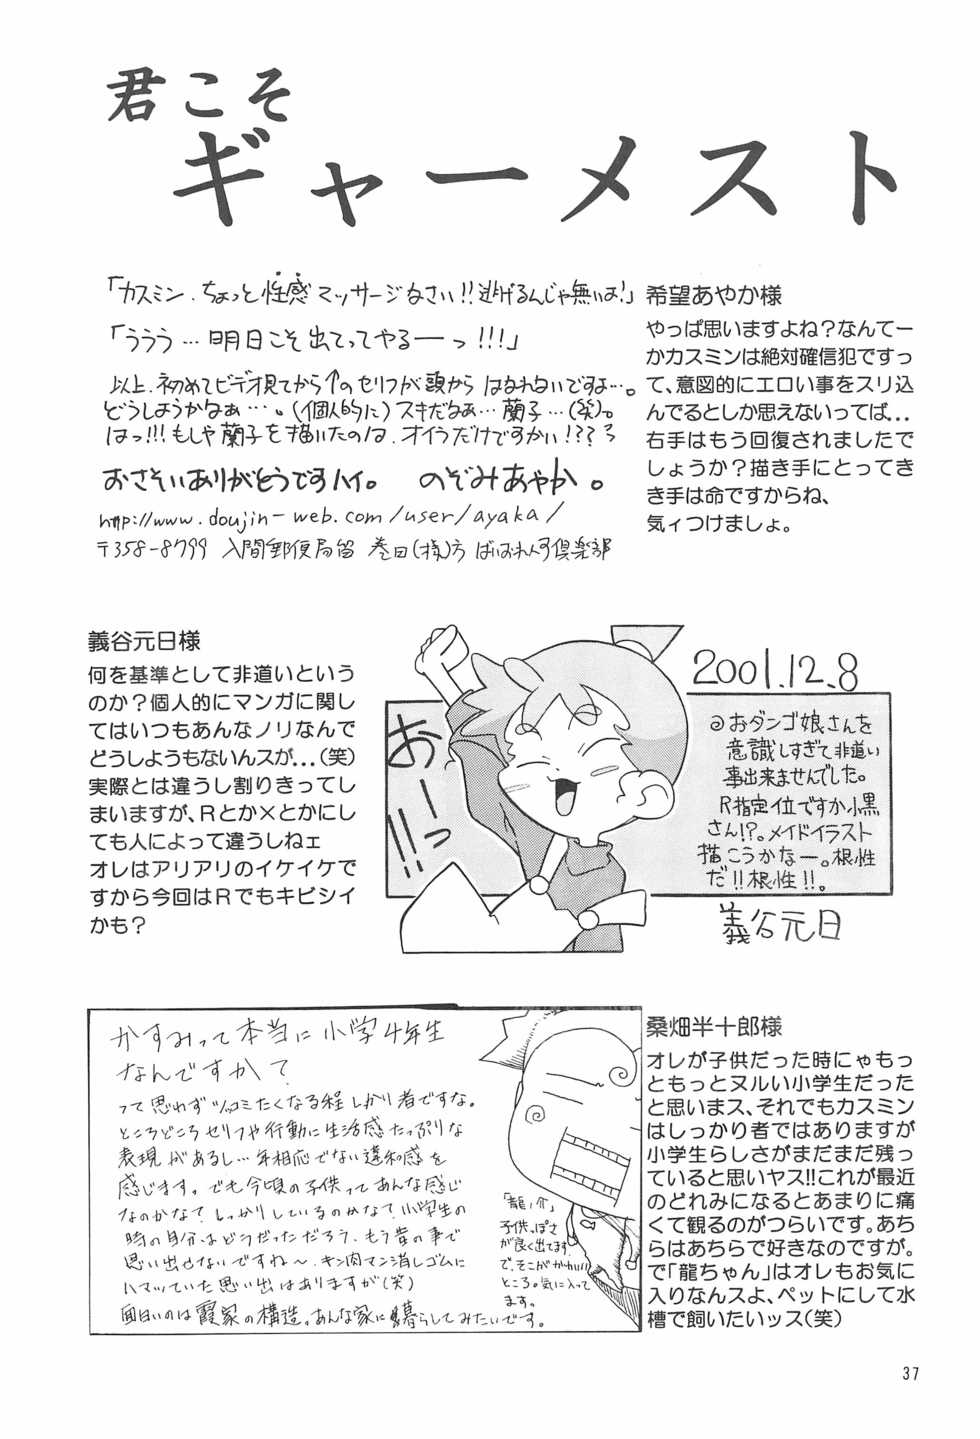 君こそ
ギャーメスト
「カスミン、ちょっと性感マッサージなさい!!逃げるんじゃ無いよ!」
「ううう…明日こそ出てってやるーっ!!!」
以上、初めてビデオ見てから↑のセリフが頭からはなれないですよ…。
どうしようかなぁ…。(個人的に)スキだなぁ…蘭子…(笑)。
はっ!!!もしや蘭子を描いたのは、オイラだけですかい!???
おさそいありがとうですハイ。 のぞみあやか。
http://www.doujin-web.com/user/ayaka/
〒358-8799 入間郵便局留 巻田(様)方 ばいおれんす倶楽部
希望あやか様
やっぱ思いますよね?なんてー
かカスミンは絶対確信犯ですっ
て、意図的にエロい事をスリ込
んでるとしか思えないってば…
右手はもう回復されましたで
しょうか?描き手にとってき
き手は命ですからね、
気ィつけましょ。
義谷元日様
何を基準として非道いという
のか?個人的にマンガに関し
てはいつもあんなノリなんで
どうしようもないんスが…(笑)
実際とは違うし割りきってし
まいますが、Rとか×とかにし
ても人によって違うしねェ
オレはアリアリのイケイケで
すから今回はRでもキビシイ
かも?
おーっ!!
2001.12.8
◎おダンゴ娘さんを
意識しすぎて非道い
事出来ませんでした。
R指定位ですか小黒
さん!?。メイドイラスト
描こうかなー。根性
だ!!根性!!。
義谷元日
かすみって本当に小学4年生
なんですか?
って思わずツッコミたくなる程しかり者ですな。
ところどころセリフや行動に生活感たっぷりな
表現があるし…年相応でない違和感を
感じます。でも今頃の子供ってあんな感じ
なのかなて、しっかりしているのかなて、小学生の
時の自分はどうだっただろう、もう昔の事で
思い出せないですね〜、キン肉マン消しゴムに
ハマッていた思い出はありますが(笑)
面白いのは霞家の構造。あんな家に暮らしてみたいです。
「龍ノ介」
子供っぽさ
が良く出てます
で、そこがかわいい
ところ。気に入って
ます。
桑畑半十郎様
オレが子供だった時にゃもっ
ともっとヌルい小学生だった
と思いまス、それでもカスミン
はしっかり者ではありますが
小学生らしさがまだまだ残っ
ていると思いヤス!!これが最近
のどれみになるとあまりに痛
くて観るのがつらいです。あち
らはあちらで好きなのですが。
で「龍ちゃん」はオレもお気に
入りなんスよ、ペットにして水
槽で飼いたいッス(笑)
37